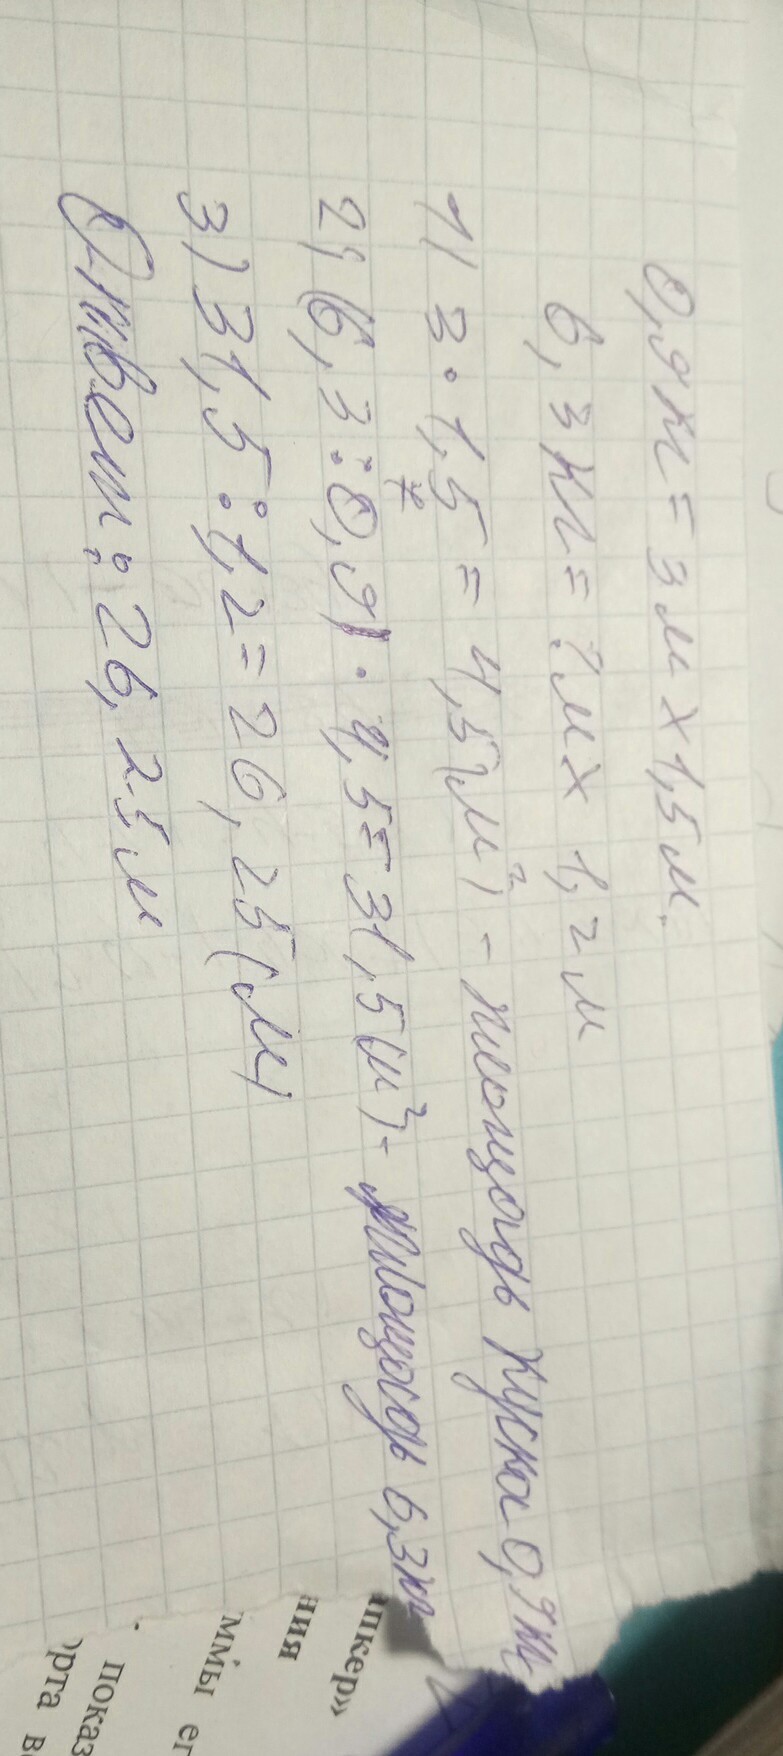 0,9 кг = 3 м х 1,5 м.
6,3 кг = ? м х 1,2 м
1) 3 · 1,5 = 4,5 (м²) - площадь куска 0,9 кг
2) (6,3 : 0,9) · 4,5 = 31,5 (м²) - площадь 6,3 кг
3) 31,5 : 1,2 = 26,25 (м)
Ответ: 26,25 м
апкер»
ния
ммы ег
показ
орта в